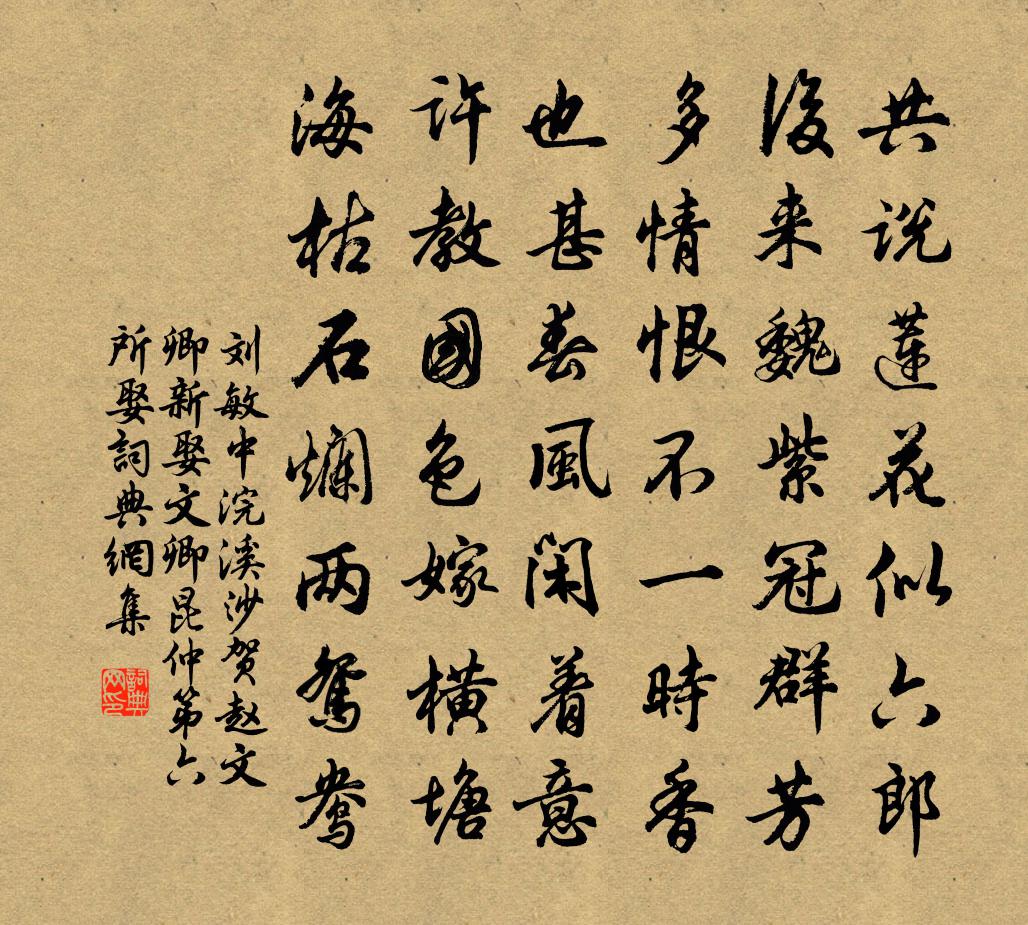 共说蓮花似六郎
後来魏紫冠群芳
多情恨不一時香
也甚春風闲着意
许教國色嫁横塘
海枯石爛两鸳鸯
刘敏中浣溪沙贺赵文
卿新娶文卿昆仲第六
所娶詞典網集
詞典
网印